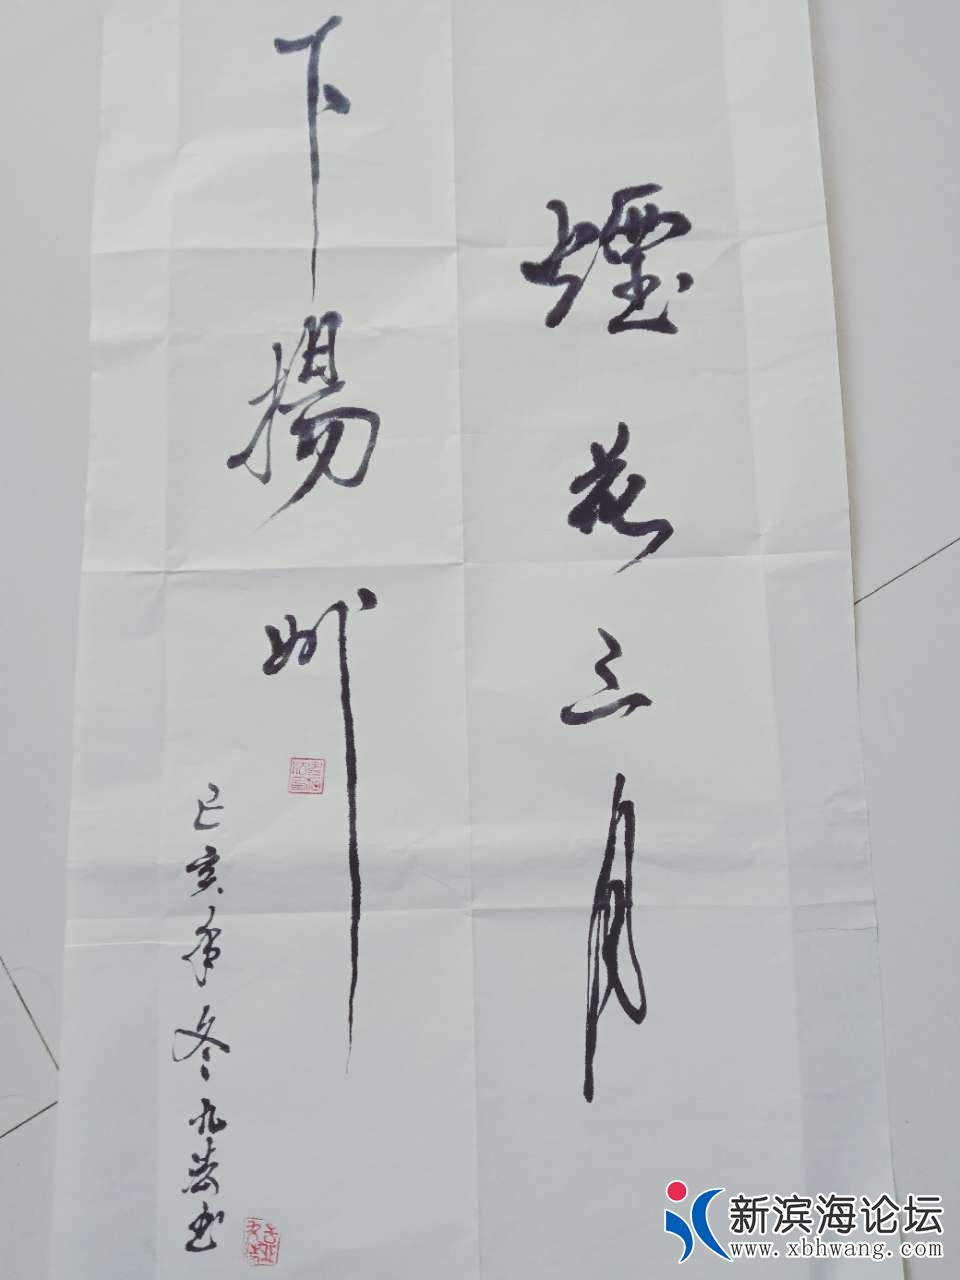 煙花三月
下揚州
己亥年冬九岁书
新滨海论坛
www.xbhwang.com